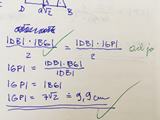 D d√2 B
|DB| · |BG| / 2 = |DB| · |GP| / 2
|GP| = |DB| · |BG| / |DB|
|GP| = |BG|
|GP| = 7√2 ≅ 9,9 cm